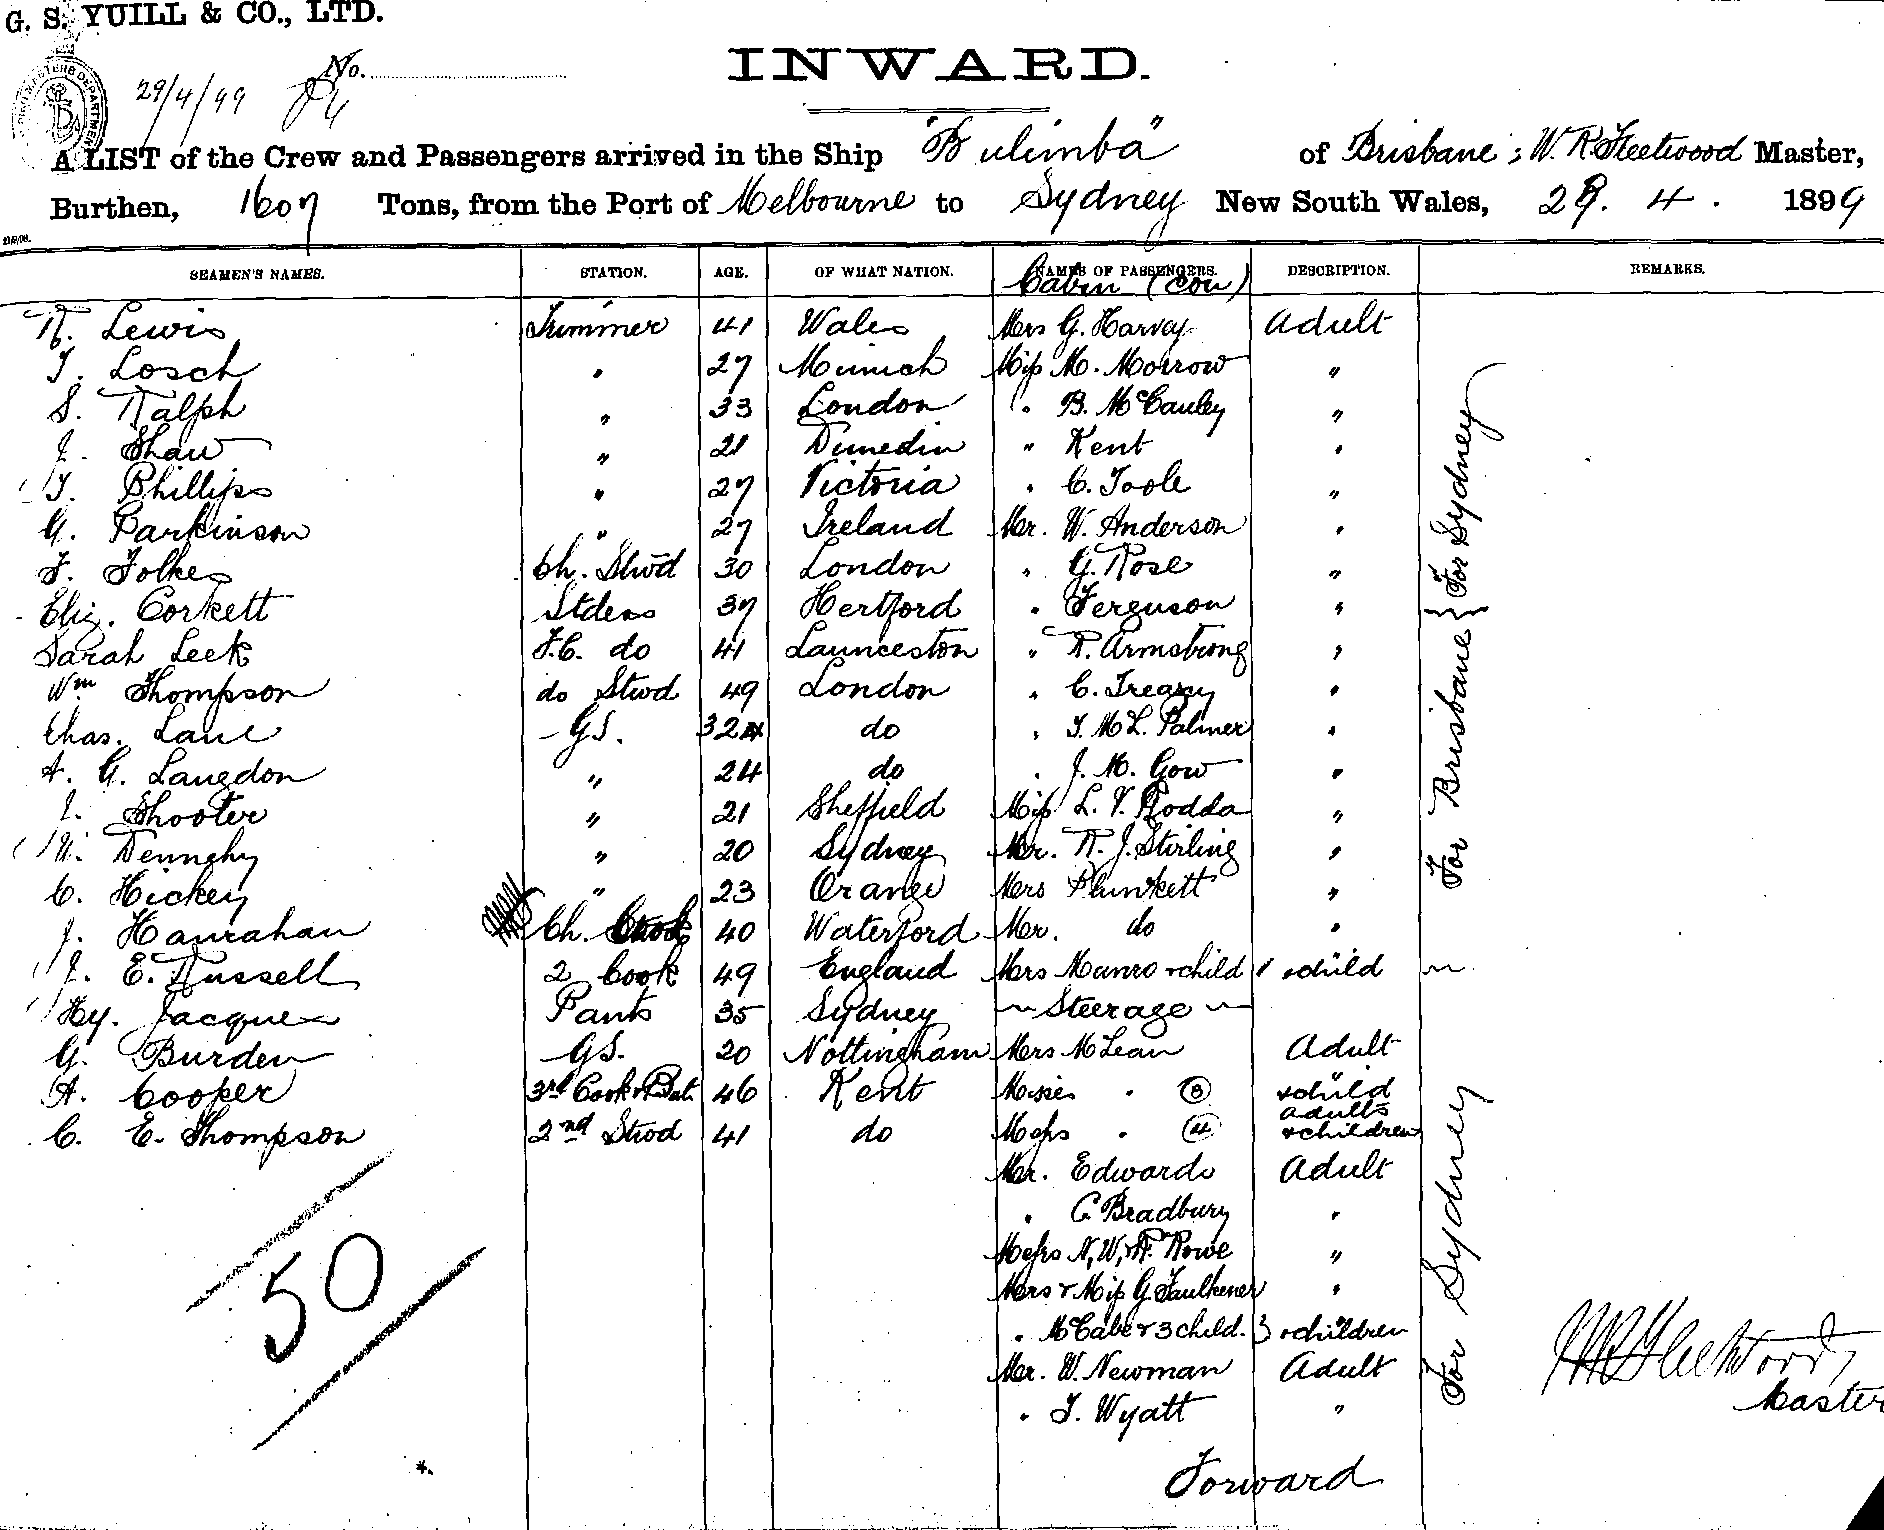 G. S. YUILL & CO., LTD.
No.
29/4/99
INWARD.
A LIST of the Crew and Passengers arrived in the Ship "Bulimba" of Brisbane; W. R. Fleetwood Master,
Burthen, 1607 Tons, from the Port of Melbourne to Sydney New South Wales, 29. 4. 1899
SEAMEN'S NAMES. STATION. AGE. OF WHAT NATION. NAMES OF PASSENGERS. DESCRIPTION. REMARKS.
Cabin (con)
R. Lewis Trimmer 41 Wales Mrs G. Harvey Adult
T. Losch " 27 Munich Miss M. Morrow "
S. Ralph " 33 London " B. McCauley "
J. Shaw " 21 Dunedin " Kent "
T. Phillips " 27 Victoria " C. Toole "
G. Parkinson " 27 Ireland Mr. W. Anderson "
F. Folkes Ch. Stwd 30 London " G. Rose "
Eliz. Corkett Stdess 37 Hertford " Ferguson "
Sarah Leek F.C. do 41 Launceston " R. Armstrong "
Wm Thompson do Stwd 49 London " C. Treasy "
Chas. Lane G.S. 32 do " T. McL. Palmer "
A. G. Langdon " 24 do " J. M. Gow "
J. Shooter " 21 Sheffield Miss L. V. Rodda "
U. Dennehy " 20 Sydney Mr. R. J. Stirling "
C. Hickey " 23 Orange Mrs Plunkett "
J. Hanrahan Ch. Cook 40 Waterford Mr. do "
J. E. Russell 2 Cook 49 England Mrs Munro & child 1 & child
Hy. Jacques Pants 35 Sydney Steerage
G. Burden G.S. 20 Nottingham Mrs McLean Adult
A. Cooper 3rd Cook & But. 46 Kent Misses " (3) & child
adults
C. E. Thompson 2nd Stwd 41 do Messrs " (4) & children
Mr. Edwards Adult
" C Bradbury "
Messrs N, W, & R. Rowe "
Mrs & Miss G. Faulkener "
" McCabe & 3 child. 3 & children
Mr. W. Newman Adult
" T. Wyatt "
For Brisbane } For Sydney
For Sydney
50
W R Fleetwood,
Master
Forward